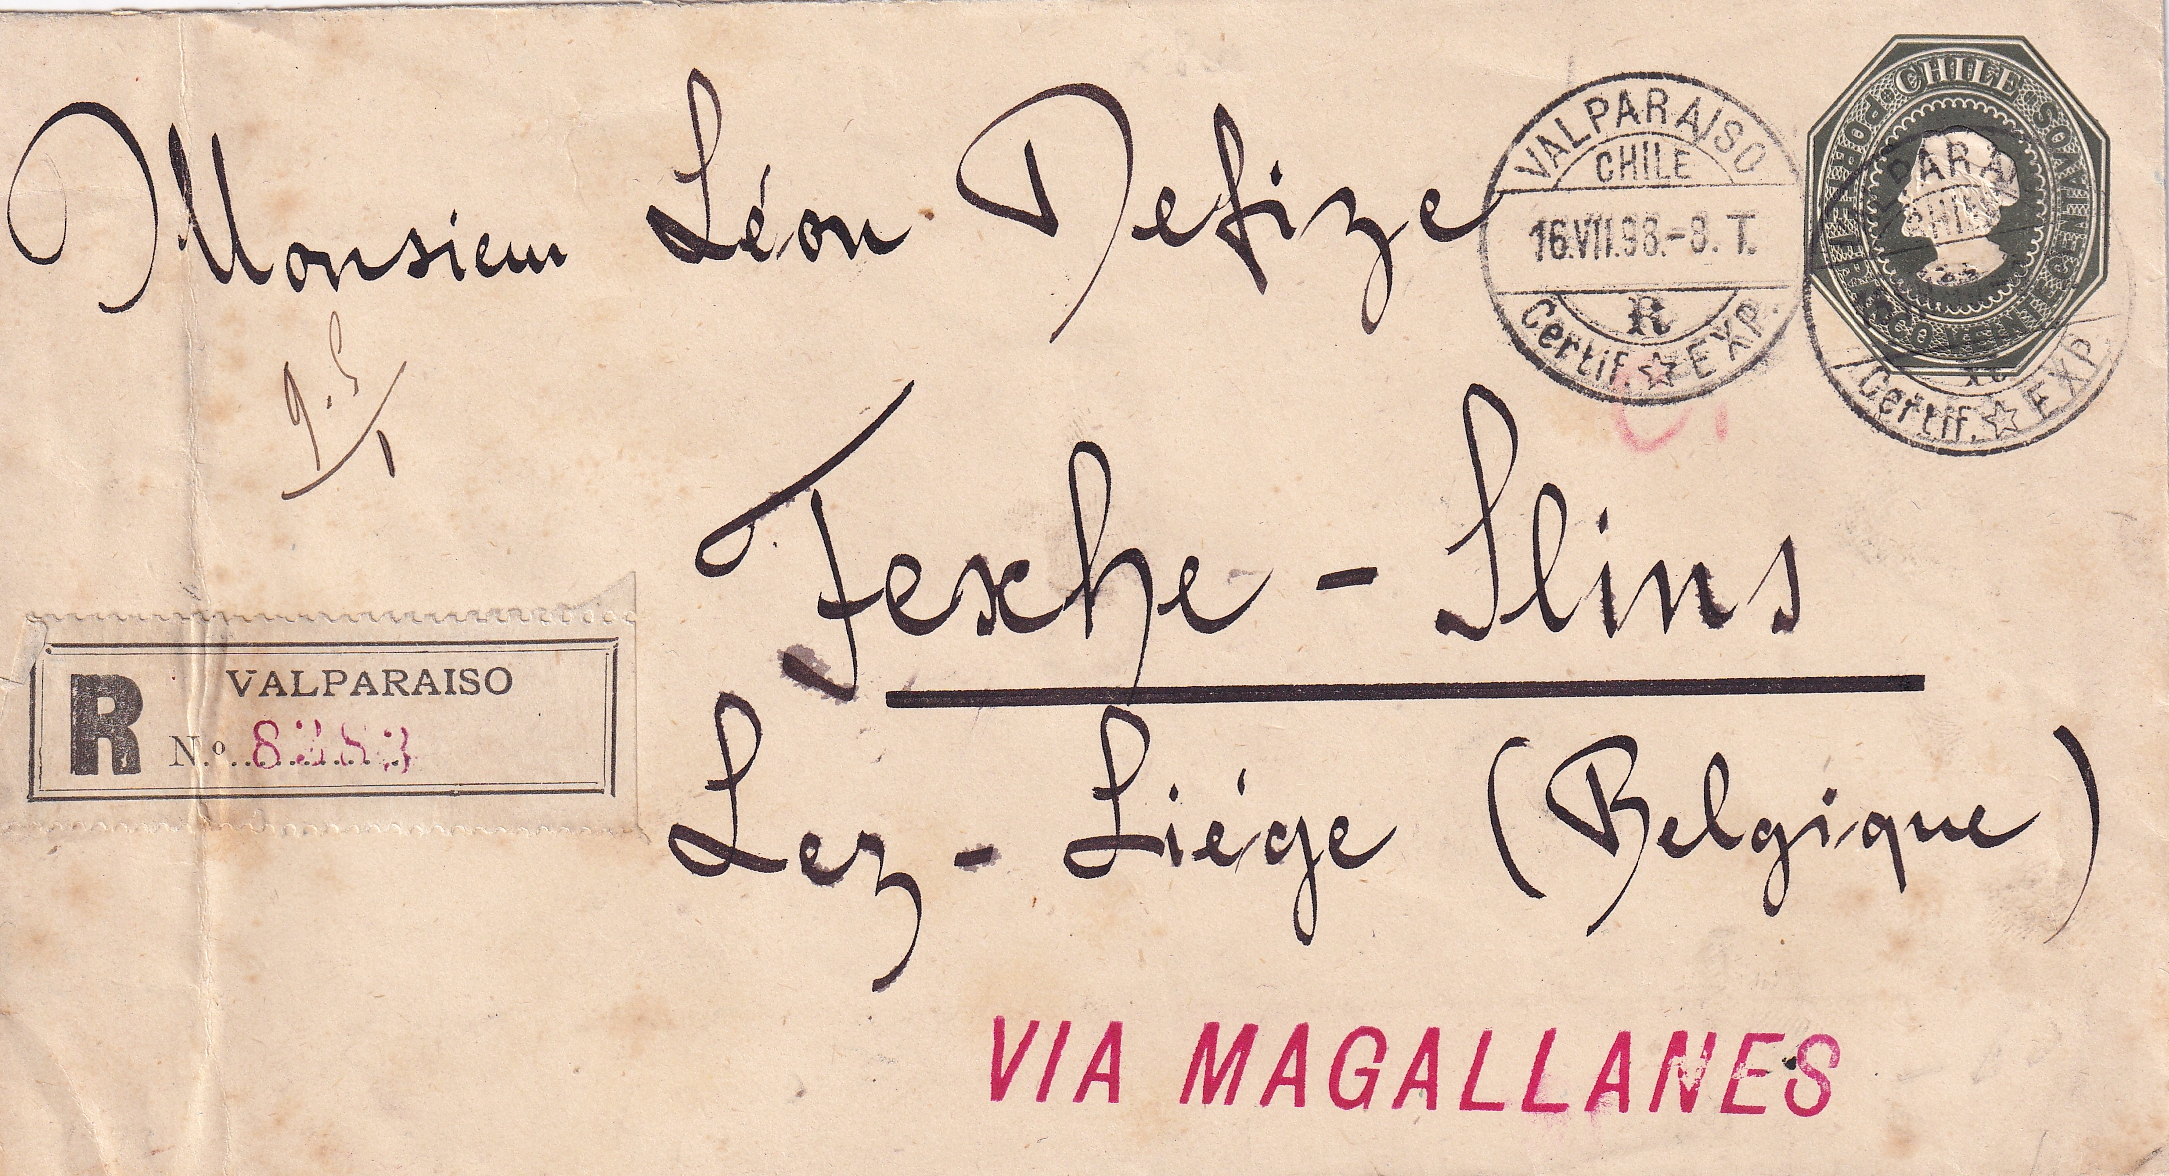 Monsieur Léon Defize
VALPARAISO
CHILE
16.VII.98.-8. T.
R
Certif. ☆ EXP.
CHILE
PARA
CHILE
Certif. ☆ EXP.
Fexhe-Slins
R VALPARAISO
N.º
Lez-Liége (Belgique)
VIA MAGALLANES